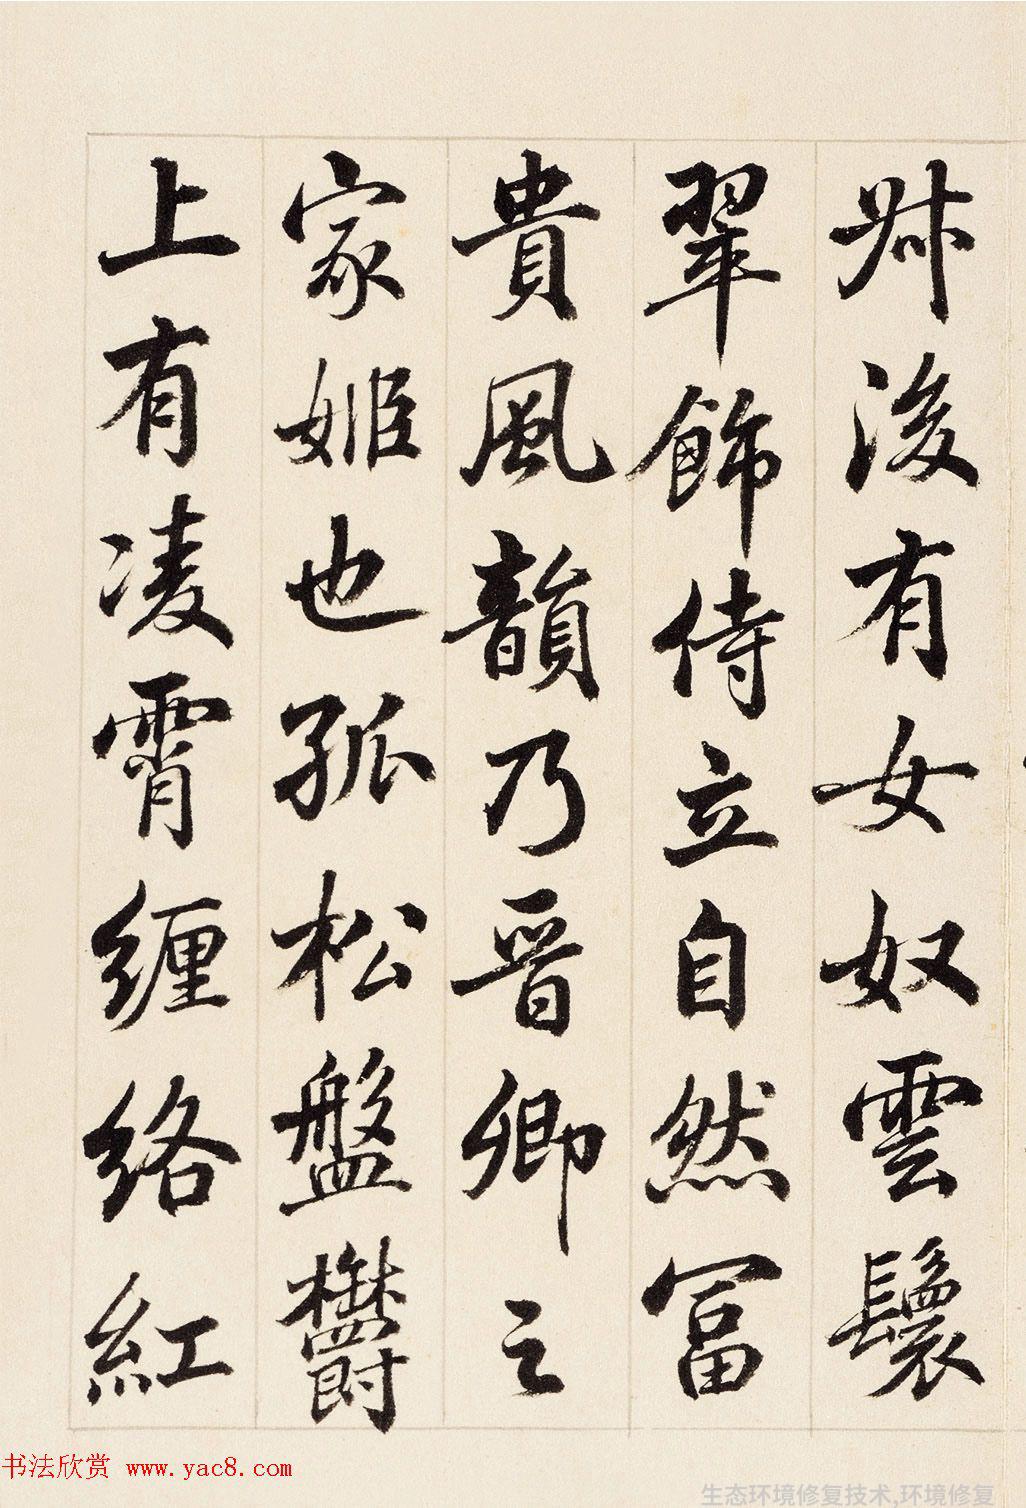 叔後有女奴雲鬟
翠飾侍立自然富
貴風韻乃晋卿之
家姬也孤松盤欝
上有凌霄缠络紅
书法欣赏 www.yac8.com
生态环境修复技术,环境修复